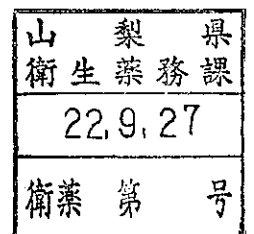 山梨県
衛生薬務課
22.9.27
衛薬第 号